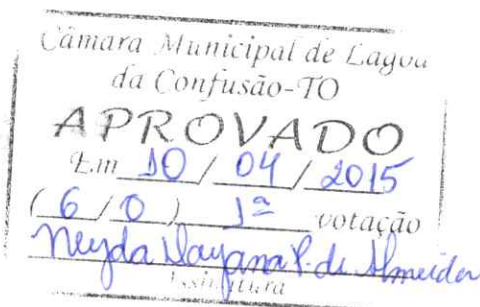 Câmara Municipal de Lagoa
da Confusão-TO
APROVADO
Em 10 / 04 / 2015
( 6 / 0 ) 1ª votação
Neyda Dayana P. de Almeida
Assinatura